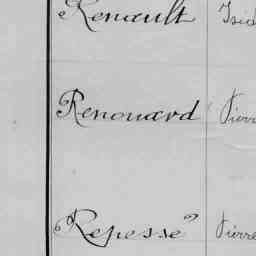 Renault Isid
Renouard Pierr
Repesse Pierre